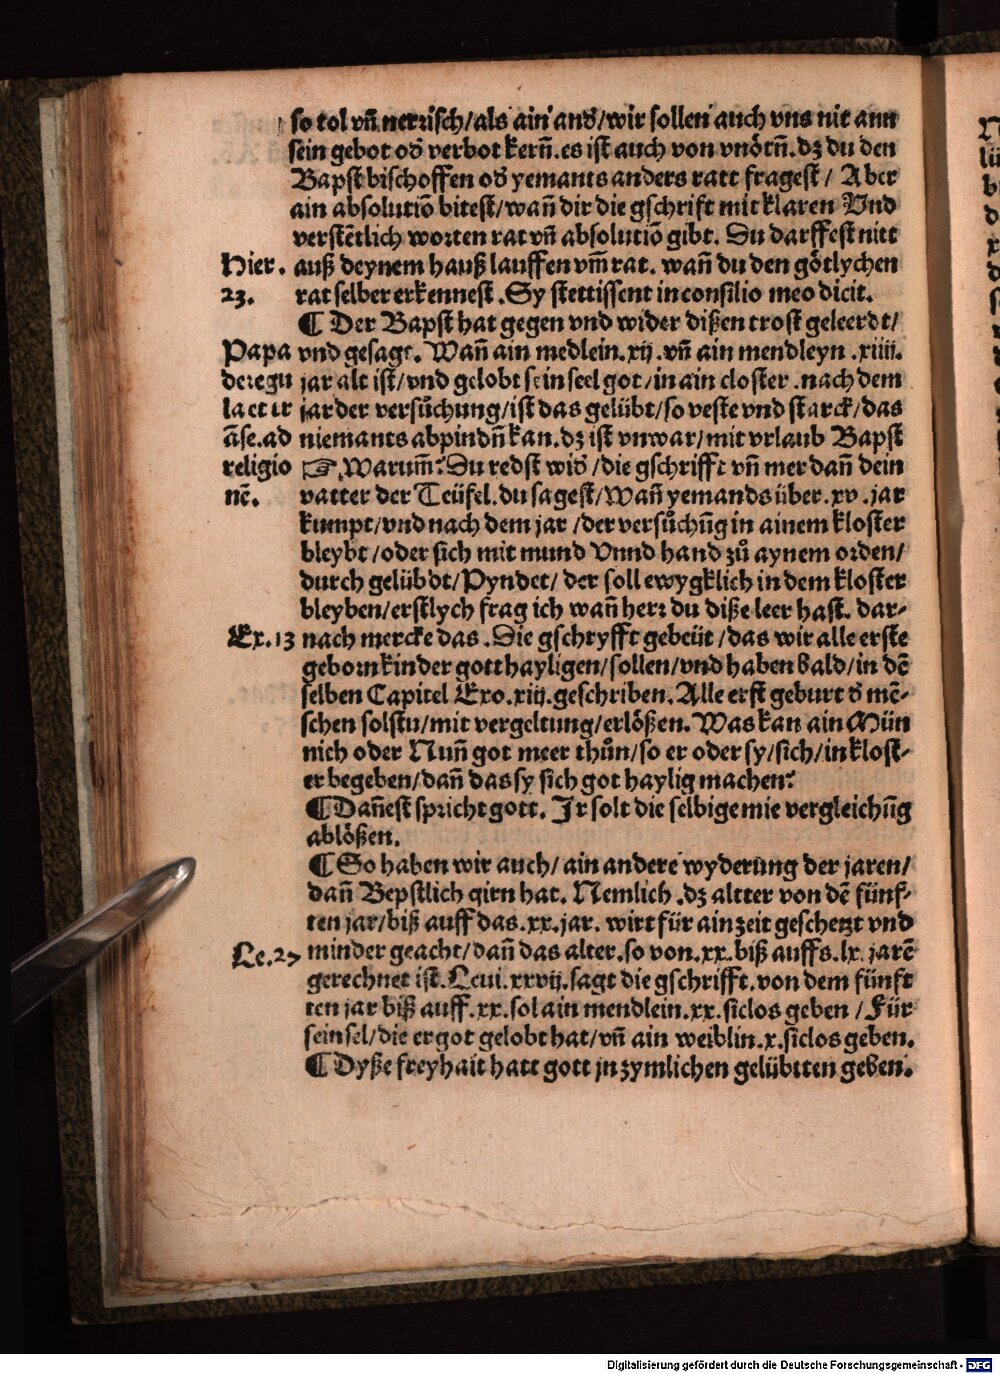 so tol vñ nerrisch/als ain and̕/wir sollen auch vns nit ann
sein gebot od̕ verbot kern̄.es ist auch von vnötn̄.dz du den
Bapst bischoffen od̕ yemants anders ratt fragest/ Aber
ain absolutiō bitest/wañ dir die gschrift mit klaren Vnd
verstētlich worten rat vñ absolutiō gibt. Du darffest nitt
Hier. auß deynem hauß lauffen vm̄ rat. wañ du den götlychen
23. rat selber erkennest .Sy stettissent in consilio meo dicit.
¶ Der Bapst hat gegen vnd wider dißen trost geleerdt/
Papa vnd gesagt. Wañ ain medlein.xij.vñ ain mendleyn .xiiii.
de regu jar alt ist/vnd gelobt sein seel got/in ain closter .nach dem
la et tr jar der versůchung/ist das gelübt/so veste vnd starck/das
āse.ad niemants abpindn̄ kan.dz ist vnwar/mit vrlaub Bapst
religio ☞.Warum̄? Du redst wid̕/die gschrifft vñ mer dañ dein
nē. vatter der Teüfel.du sagest/Wañ yemands über.xv.jar
kumpt/vnd nach dem jar /der versůchūg in ainem kloster
bleybt/oder sich mit mund Vnnd hand zů aynem orden/
durch gelübdt/Pyndet/ der soll ewygklich in dem kloster
bleyben/erstlych frag ich wañ herr du diße leer hast. dar-
Ex.13 nach mercke das .Die gschryfft gebeüt/das wir alle erste
gebornkinder gott hayligen/sollen/vnd haben bald/in dē
selben Capitel Exo.xiij.geschriben.Alle erst geburt d̕ mē-
schen solstu/mit vergeltung/erlößen.Was kan ain Mün
nich oder Nuñ got meer thůn/so er oder sy/sich/in klost-
er begeben/dañ das sy sich got haylig machen?
¶ Dañest spricht gott. Jr solt die selbigemie vergleichūg
ablößen.
¶ So haben wir auch/ ain andere wyderūng der jaren/
dañ Bepstlich qirn hat. Nemlich .dz altter von dē fünf-
ten jar/biß auff das.xx.jar. wirt für ain zeit geschetzt vnd
Le.27 minder geacht/dañ das alter.so von.xx.biß auffs.lx.jarē
gerechnet ist.Leui.xxvij.sagt die gschrifft.von dem fünft
ten jar biß auff.xx.sol ain mendlein.xx.siclos geben /Für
sein sel/die er got gelobt hat/vñ ain weiblin.x.siclos geben.
¶ Dyße freyhait hatt gott jn zymlichen gelübtten geben.
Digitalisierung gefördert durch die Deutsche Forschungsgemeinschaft - DFG